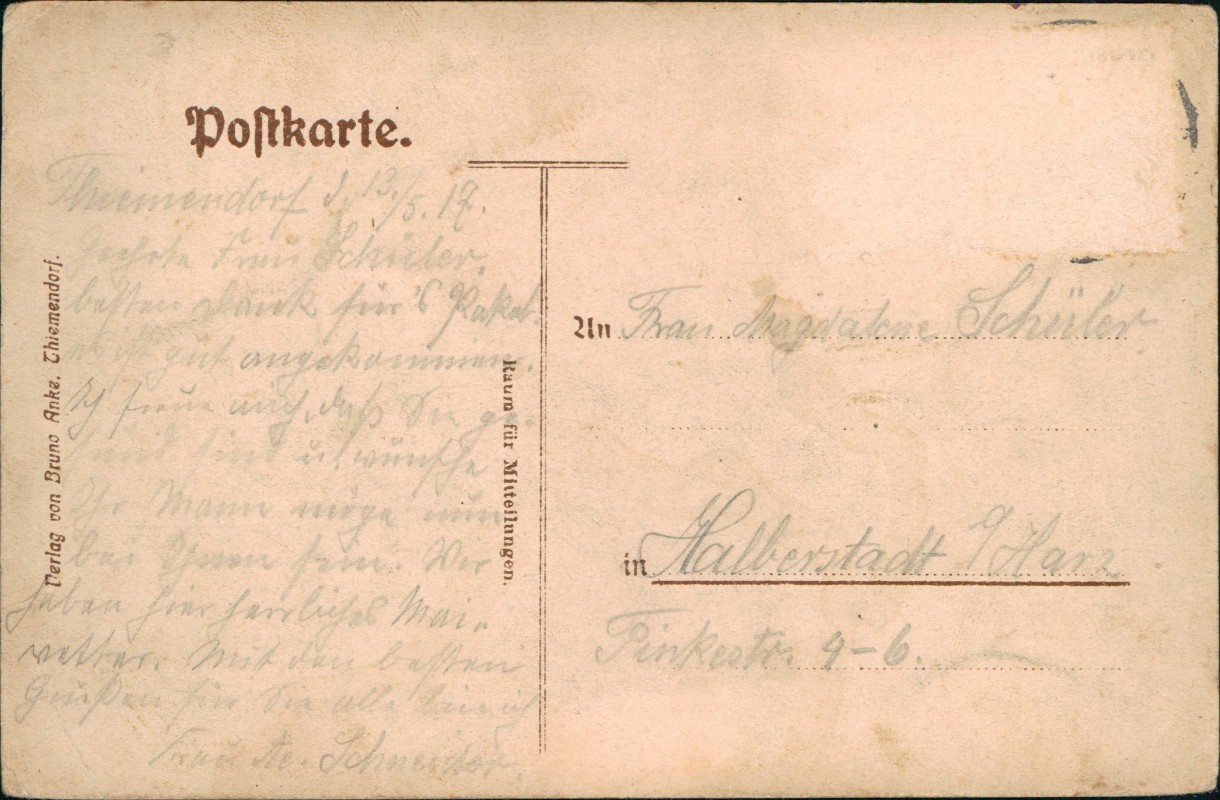 Postkarte.
Thiemendorf d. 13./5. 17.
Geehrte Frau Schüler,
besten Dank für's Paket.
es ist gut angekommen.
Ich freue mich, daß Sie ge-
sund sind u. wünsche
Ihr Mann möge nun
bei Ihnen sein. Wir
haben hier herrliches Mai-
wetter. Mit den besten
Grüßen für Sie alle bin ich
Frau Schneider
Verlag von Bruno Anke, Thiemendorf.
Raum für Mitteilungen.
An Frau Magdalene Schüler
in Halberstadt a/Harz
Finkestr. 4-6.